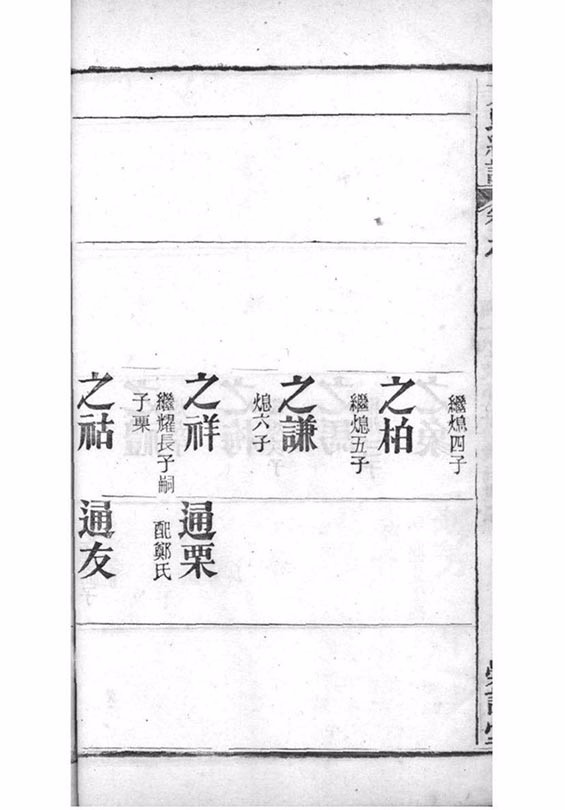 繼熄四子
之柏
繼熄五子
之謙
熄六子
之祥
繼耀長子嗣
子栗
之祜
通栗
配鄭氏
通友